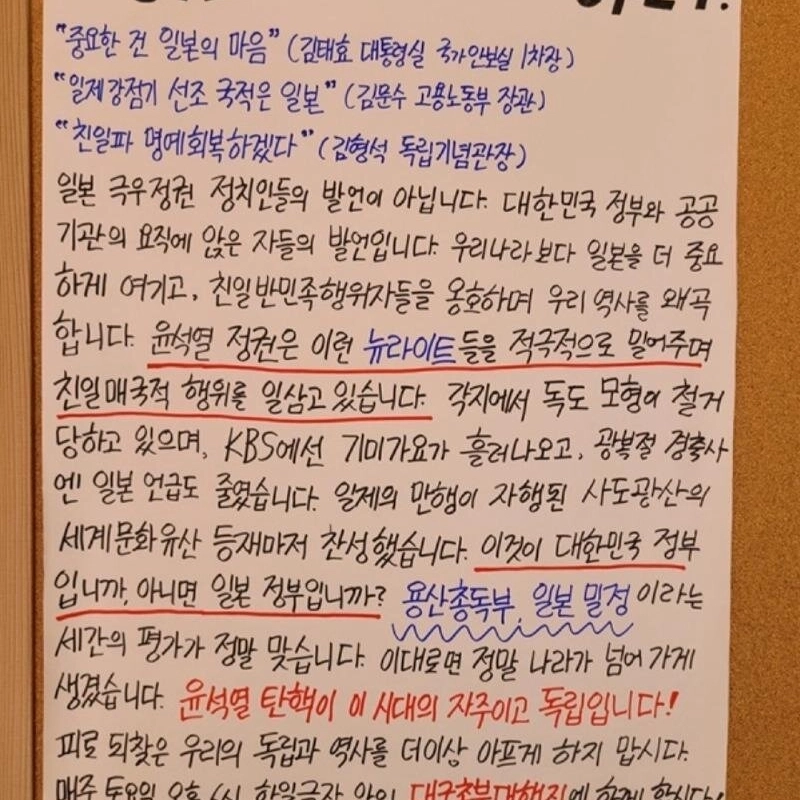 "중요한 건 일본의 마음" (김태효 대통령실 국가안보실 1차장)
"일제강점기 선조 국적은 일본" (김문수 고용노동부 장관)
"친일파 명예회복하겠다" (김형석 독립기념관장)
일본 극우정권 정치인들의 발언이 아닙니다. 대한민국 정부와 공공
기관의 요직에 앉은 자들의 발언입니다. 우리나라보다 일본을 더 중요
하게 여기고, 친일반민족행위자들을 옹호하며 우리 역사를 왜곡
합니다. 윤석열 정권은 이런 뉴라이트들을 적극적으로 밀어주며
친일매국적 행위를 일삼고 있습니다. 각지에서 독도 모형이 철거
당하고 있으며, KBS에선 기미가요가 흘러나오고, 광복절 경축사
엔 일본 언급도 줄였습니다. 일제의 만행이 자행된 사도광산의
세계문화유산 등재마저 찬성했습니다. 이것이 대한민국 정부
입니까, 아니면 일본 정부입니까? 용산총독부, 일본 밀정 이라는
세간의 평가가 정말 맞습니다. 이대로면 정말 나라가 넘어가게
생겼습니다. 윤석열 탄핵이 이 시대의 자주이고 독립입니다!
피로 되찾은 우리의 독립과 역사를 더이상 아프게 하지 맙시다.
매주 토요일 오후